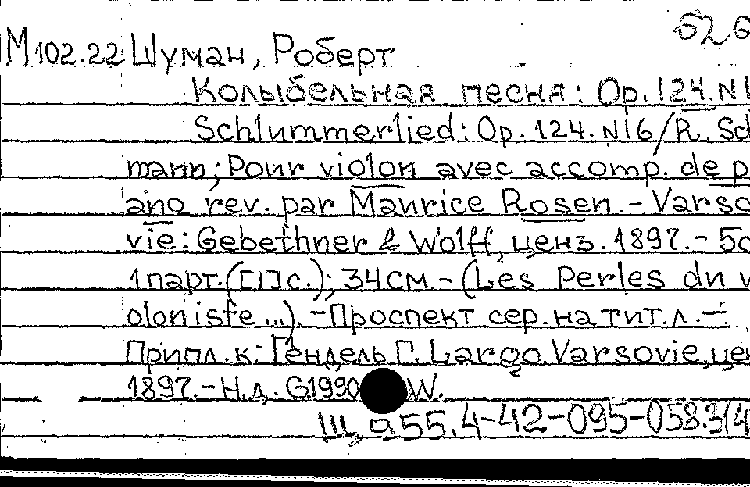 526
М102.22 Шуман, Роберт
Колыбельная песня: Op.124.N1
Schlummerlied: Op.124.N16/R. Sc
mann; Pour violon avec accomp. de p
ano rev. par Maurice Rosen.-Varso
vie: Gebethner & Wolff, ценз.1897.-5с
1парт.([1]с.); 34см.-(Les Perles du v
oloniste...).-Проспект сер. на тит.л.-
Припл.к: Гендель Г. Largo. Varsovie, це
1897.-Н.д. G1990 W.
Щ 955.4-42-095-058.3(4